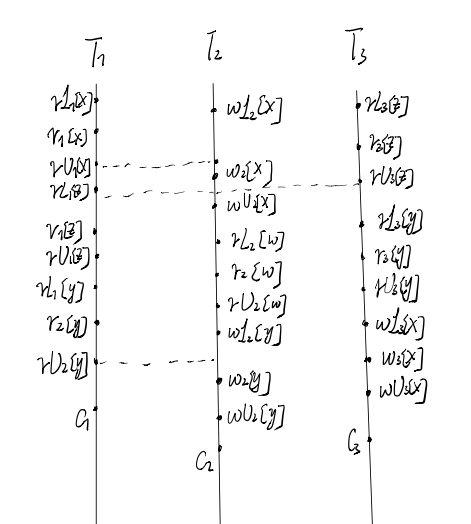 T₁
rL₁[x]
r₁[x]
rU₁[x]
rL₁[z]
r₁[z]
rU₁[z]
rL₁[y]
r₂[y]
rU₂[y]
C₁
T₂
wL₂[x]
w₂[x]
wU₂[x]
rL₂[w]
r₂[w]
rU₂[w]
wL₂[y]
w₂[y]
wU₂[y]
C₂
T₃
rL₃[z]
r₃[z]
rU₃[z]
rL₃[y]
r₃[y]
rU₃[y]
wL₃[x]
w₃[x]
wU₃[x]
C₃